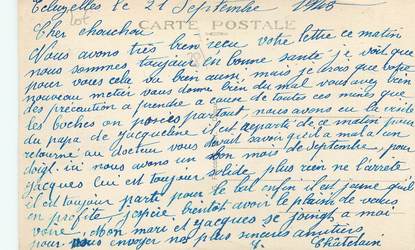 Ecluzelles le 21 Septembre 1945
lot
CARTE POSTALE
Cher chouchou
Nous avons très bien reçu votre lettre ce matin
nous sommes toujour en bonne santé je voit que
pour vous cela va bien aussi, mais je crois que votre
nouveau metier vous donne bien du mal vous avez bien
des précaution a prendre a cause de toutes ces mines que
les boches on posées partout, nous avons eu la visite
du papa de Jacqueline il est reparti de ce matin pour
retourné au docteur vous savais qu'il a mal a un
doigt. ici nous avons un bon mois de Septembre, pour
Jacques lui est toujour solide, plus rien ne l'arrete
il est toujour parti pour le tal enfin il est jeune qu'il
en profite, j'espère bientot avoir le plaisir de vous
voire, Mon mari et Jacques se joingt a moi
pour vous envoyer nos plus sincères amitiers
Chatelain